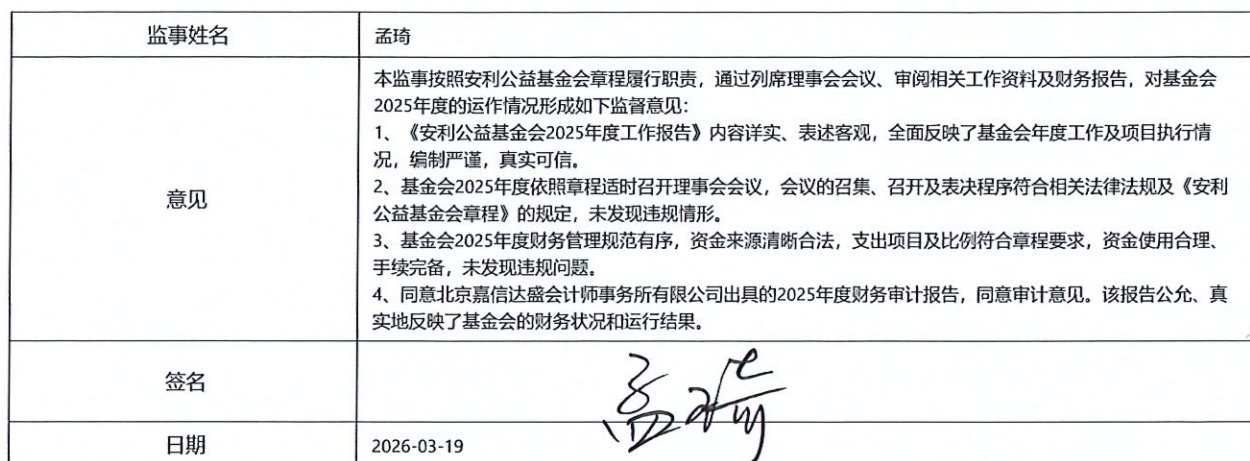 监事姓名
孟琦
意见
本监事按照安利公益基金会章程履行职责，通过列席理事会会议、审阅相关工作资料及财务报告，对基金会
2025年度的运作情况形成如下监督意见：
1、《安利公益基金会2025年度工作报告》内容详实、表述客观，全面反映了基金会年度工作及项目执行情
况，编制严谨，真实可信。
2、基金会2025年度依照章程适时召开理事会会议，会议的召集、召开及表决程序符合相关法律法规及《安利
公益基金会章程》的规定，未发现违规情形。
3、基金会2025年度财务管理规范有序，资金来源清晰合法，支出项目及比例符合章程要求，资金使用合理、
手续完备，未发现违规问题。
4、同意北京嘉信达盛会计师事务所有限公司出具的2025年度财务审计报告，同意审计意见。该报告公允、真
实地反映了基金会的财务状况和运行结果。
签名
孟琦
日期
2026-03-19